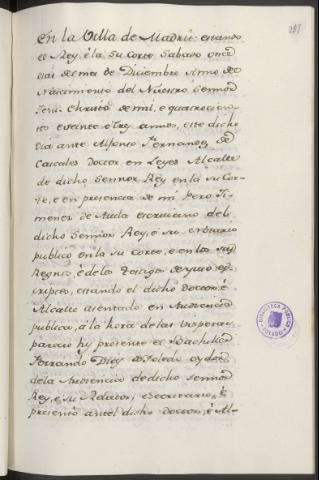 291
En la Villa de Madrit estando
el Rey, é la Su Corte Sabado once
dias del mes de Diciembre Anno del
Nascimiento del Nuestro Sennor
Jesu Christo de mil, e quatrocien
tos e veinte e trey annos, este dicho
dia ante Alfonso Fernandez de
Cascales Doctor en Leyes Alcalle
de dicho Sennor Rey en la su Cor-
te, e en presencia de mi Pero Xi
menez de escrivano del
dicho Sennor Rey, e su notario
publico en la su Corte, e en los sus
Regnos, é de los Testigos de yuso es-
criptos, estando el dicho Doctor, é
Alcalle asentado en Audiencia
publica, á la hora de las Visperas
parecio hy presente el Bachiller
Ferrando Diez de Toledo oydor
de la Audiencia de dicho Sennor
Rey, e su Relator, e Secretario, é
presentó antel dicho Doctor, é Al-
BIBLIOTECA PUBLICA
TOLEDO